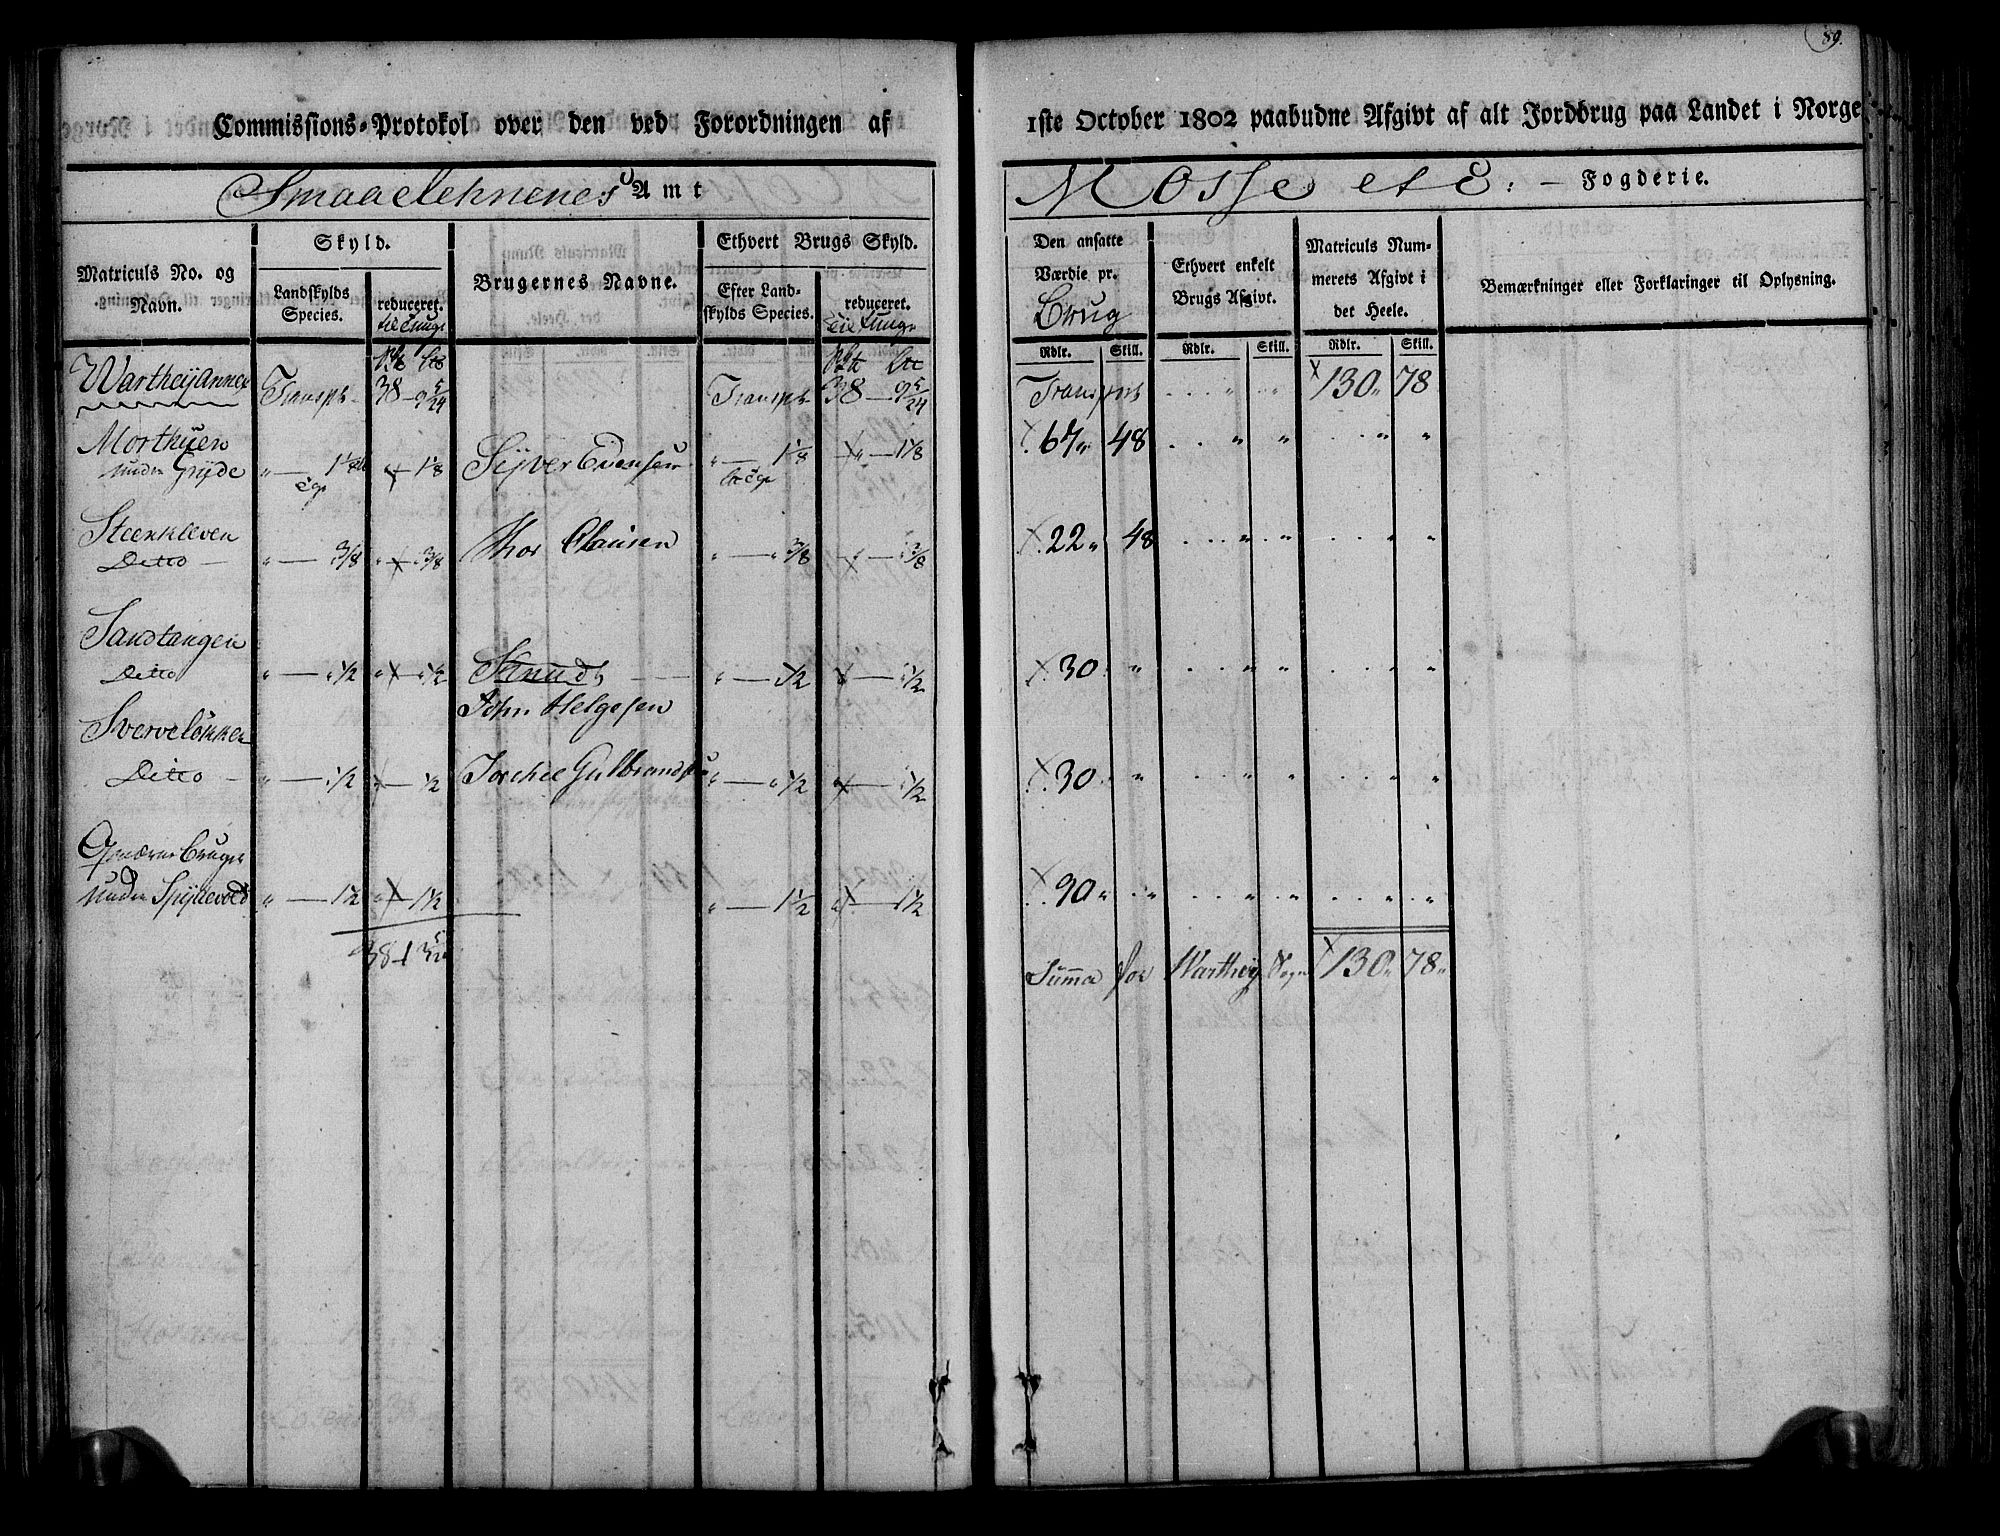 89.
Commissions-Protokol over den ved Forordningen af 1ste October 1802 paabudne Afgivt af alt Jordbrug paa Landet i Norge
Smaaelehnenes Amt
Mosse etc: – Fogderie.
Matriculs No. og Navn.
Skyld.
Landskylds Species.
reduceret.
Brugernes Navne.
Ethvert Brugs Skyld.
Efter Landskylds Species.
reduceret.
Den ansatte Værdie pr. Brug
Rdlr. Skill.
Ethvert enkelt Brugs Afgivt.
Rdlr. Skill.
Matriculs Nummerets Afgivt i det Heele.
Rdlr. Skill.
Bemærkninger eller Forklaringer til Oplysning.
Wartheij Annex Transpt 38 – 9 5/24 Transpt 38 – 9 5/24 Transport 130 „ 78
Morthuen
under Gryde „ — 1 1/8 „ — 1 1/8 Sijver Evensen „ — 1 1/8 „ — 1 1/8 67 „ 48 „ „ „ „
Steenkleven
Ditto „ — 3/8 „ — 3/8 Thor Clausen „ — 3/8 „ — 3/8 22 „ 48 „ „ „ „
Sandtangen
Ditto „ — 1/2 „ — 1/2 „ — 1/2 „ — 1/2 30 „ „ „ „ „
John Helgesen
Sverveløkken
Ditto „ — 1/2 „ — 1/2 Gulbrandsen „ — 1/2 „ — 1/2 30 „ „ „ „ „
Qværne Bruger
under Spydevold „ — 1 1/2 „ — 1 1/2 „ — 1 1/2 „ — 1 1/2 90 „ „ „ „ „
Summa for Wartheij Sogn 130 „ 78 „